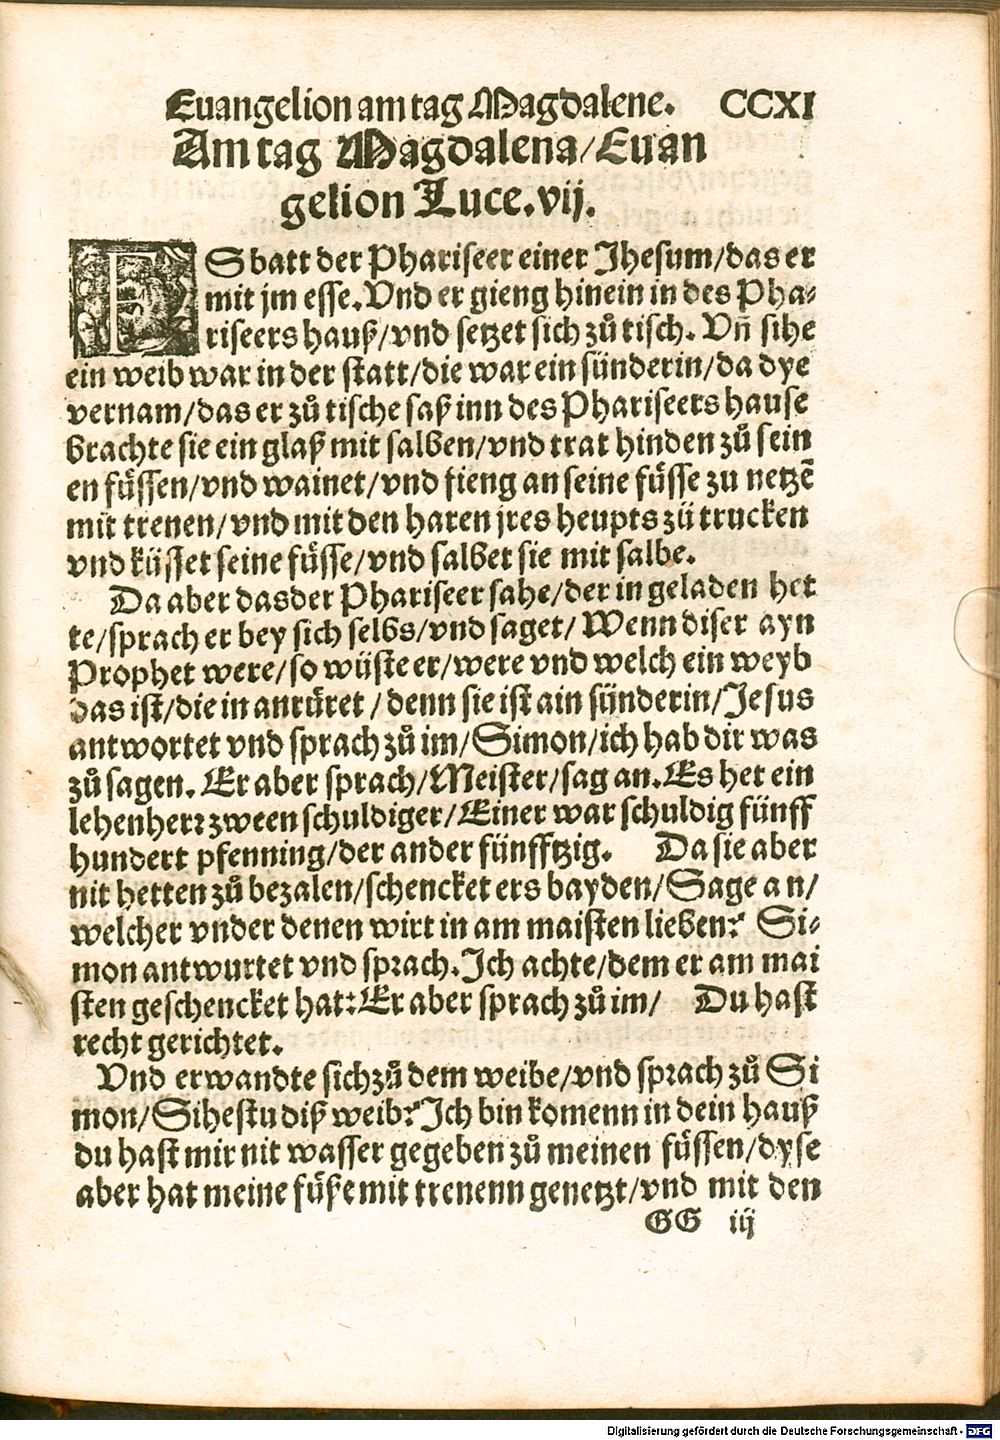 Euangelion am tag Magdalene. CCXI
Am tag Magdalena/Euan
gelion Luce.vij.
ES batt der Phariseer einer Jhesum/das er
mit jm esse.Vnd er gieng hinein in des Pha-
riseers hauß/vnd setzet sich zů tisch. Vñ sihe
ein weib war in der statt/die war ein sünderin/da dye
vernam/das er zů tische saß inn des Phariseers hause
brachte sie ein glaß mit salben/vnd trat hinden zů sein
en füssen/vnd wainet/vnd fieng an seine füsse zu netzē
mit trenen/vnd mit den haren jres heupts zü trucken
vnd küsset seine füsse/vnd salbet sie mit salbe.
Da aber das der Phariseer sahe/der in geladen het
te/sprach er bey sich selbs/vnd saget/ Wenn diser ayn
Prophet were/so wüste er/were vnd welch ein weyb
das ist/die in anrüret / denn sie ist ain sünderin/Jesus
antwortet vnd sprach zů im/Simon/ich hab dir was
zů sagen. Er aber sprach/Meister/sag an.Es het ein
lehenherr zween schuldiger/Einer war schuldig fünff
hundert pfenning/der ander fünfftzig. Da sie aber
nit hetten zů bezalen/schencket ers bayden/Sage an/
welcher vnder denen wirt in am maisten lieben? Si-
mon antwurtet vnd sprach.Ich achte/dem er am mai
sten geschencket hat:Er aber sprach zů im/ Du hast
recht gerichtet.
Vnd er wandte sich zů dem weibe/vnd sprach zů Si
mon/Sihestu diß weib?Ich bin komenn in dein hauß
du hast mir nit wasser gegeben zů meinen füssen/dyse
aber hat meine füße mit trenenn genetzt/vnd mit den
GG iij
Digitalisierung gefördert durch die Deutsche Forschungsgemeinschaft - DFG